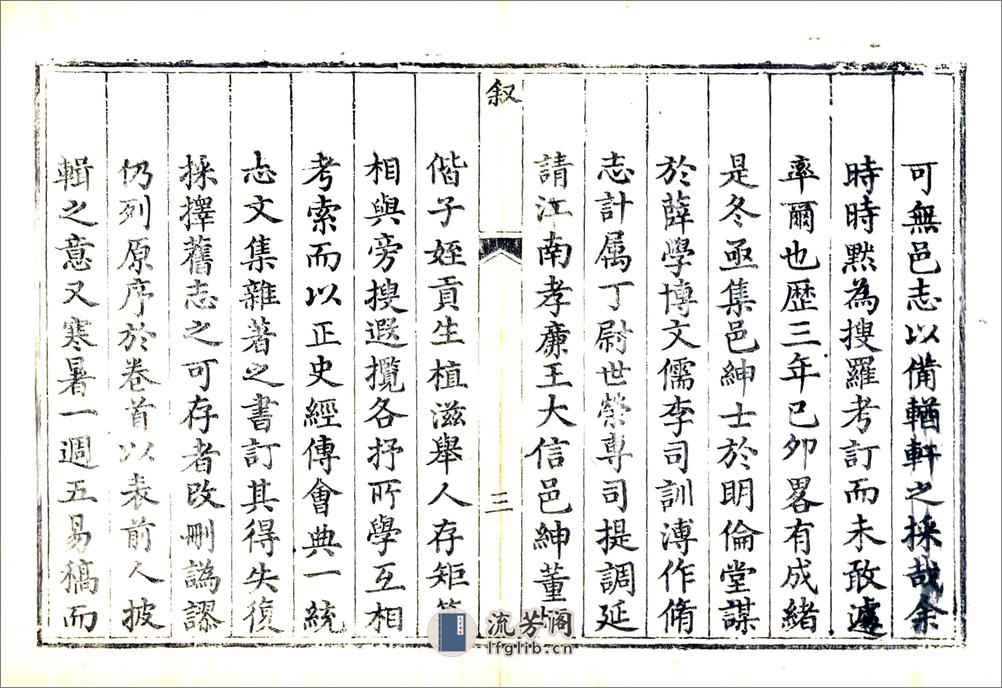 可無邑志以備輶軒之採哉余
時時黙為搜羅考訂而未敢遽
率爾也歷三年已卯畧有成緒
是冬亟集邑紳士於明倫堂謀
於薛學博文儒李司訓溥作脩
志計属丁尉世榮專司提調延
請江南孝廉王大信邑紳董
叙
三
偕子姪貢生植滋舉人存矩
相與旁搜遐攬各抒所學互相
考索而以正史經傳會典一統
志文集雜著之書訂其得失復
採擇舊志之可存者改刪譌謬
仍列原序於卷首以表前人披
輯之意又寒暑一週五易稿而
流芳阁
lfglib.cn